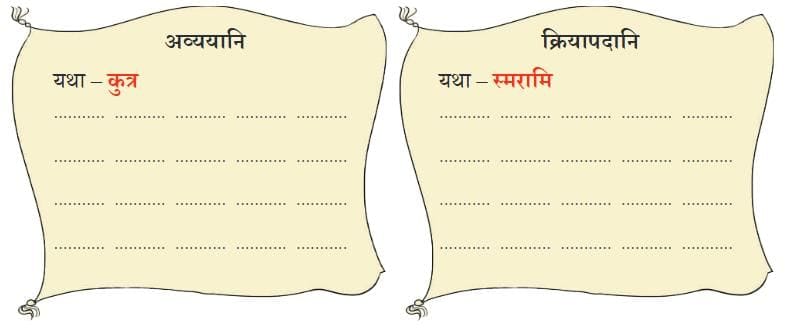 अव्ययानि
यथा – कुत्र
.......... .......... .......... .......... ..........
.......... .......... .......... .......... ..........
.......... .......... .......... .......... ..........
.......... .......... .......... .......... ..........
क्रियापदानि
यथा – स्मरामि
.......... .......... .......... .......... ..........
.......... .......... .......... .......... ..........
.......... .......... .......... .......... ..........
.......... .......... .......... .......... ..........